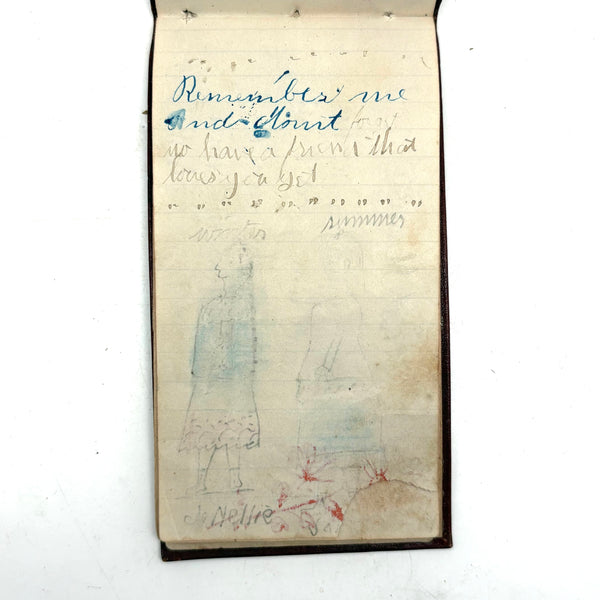 Remember me
and dount forget
yo have a friend that
loves you yet
winter summer
Nellie